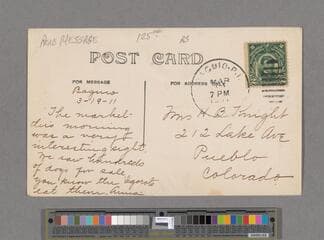 AND MESSAGE
125
POST CARD
FOR MESSAGE
FOR ADDRESS
BAGUIO, P.I.
MAR
7 PM
Baguio
3-19-11
The market
this morning
was a very
interesting sight
We saw hundreds
of dogs for sale
you know the Igorots
eat them. Anna
Mrs H B Knight
212 Lake Ave
Pueblo
Colorado